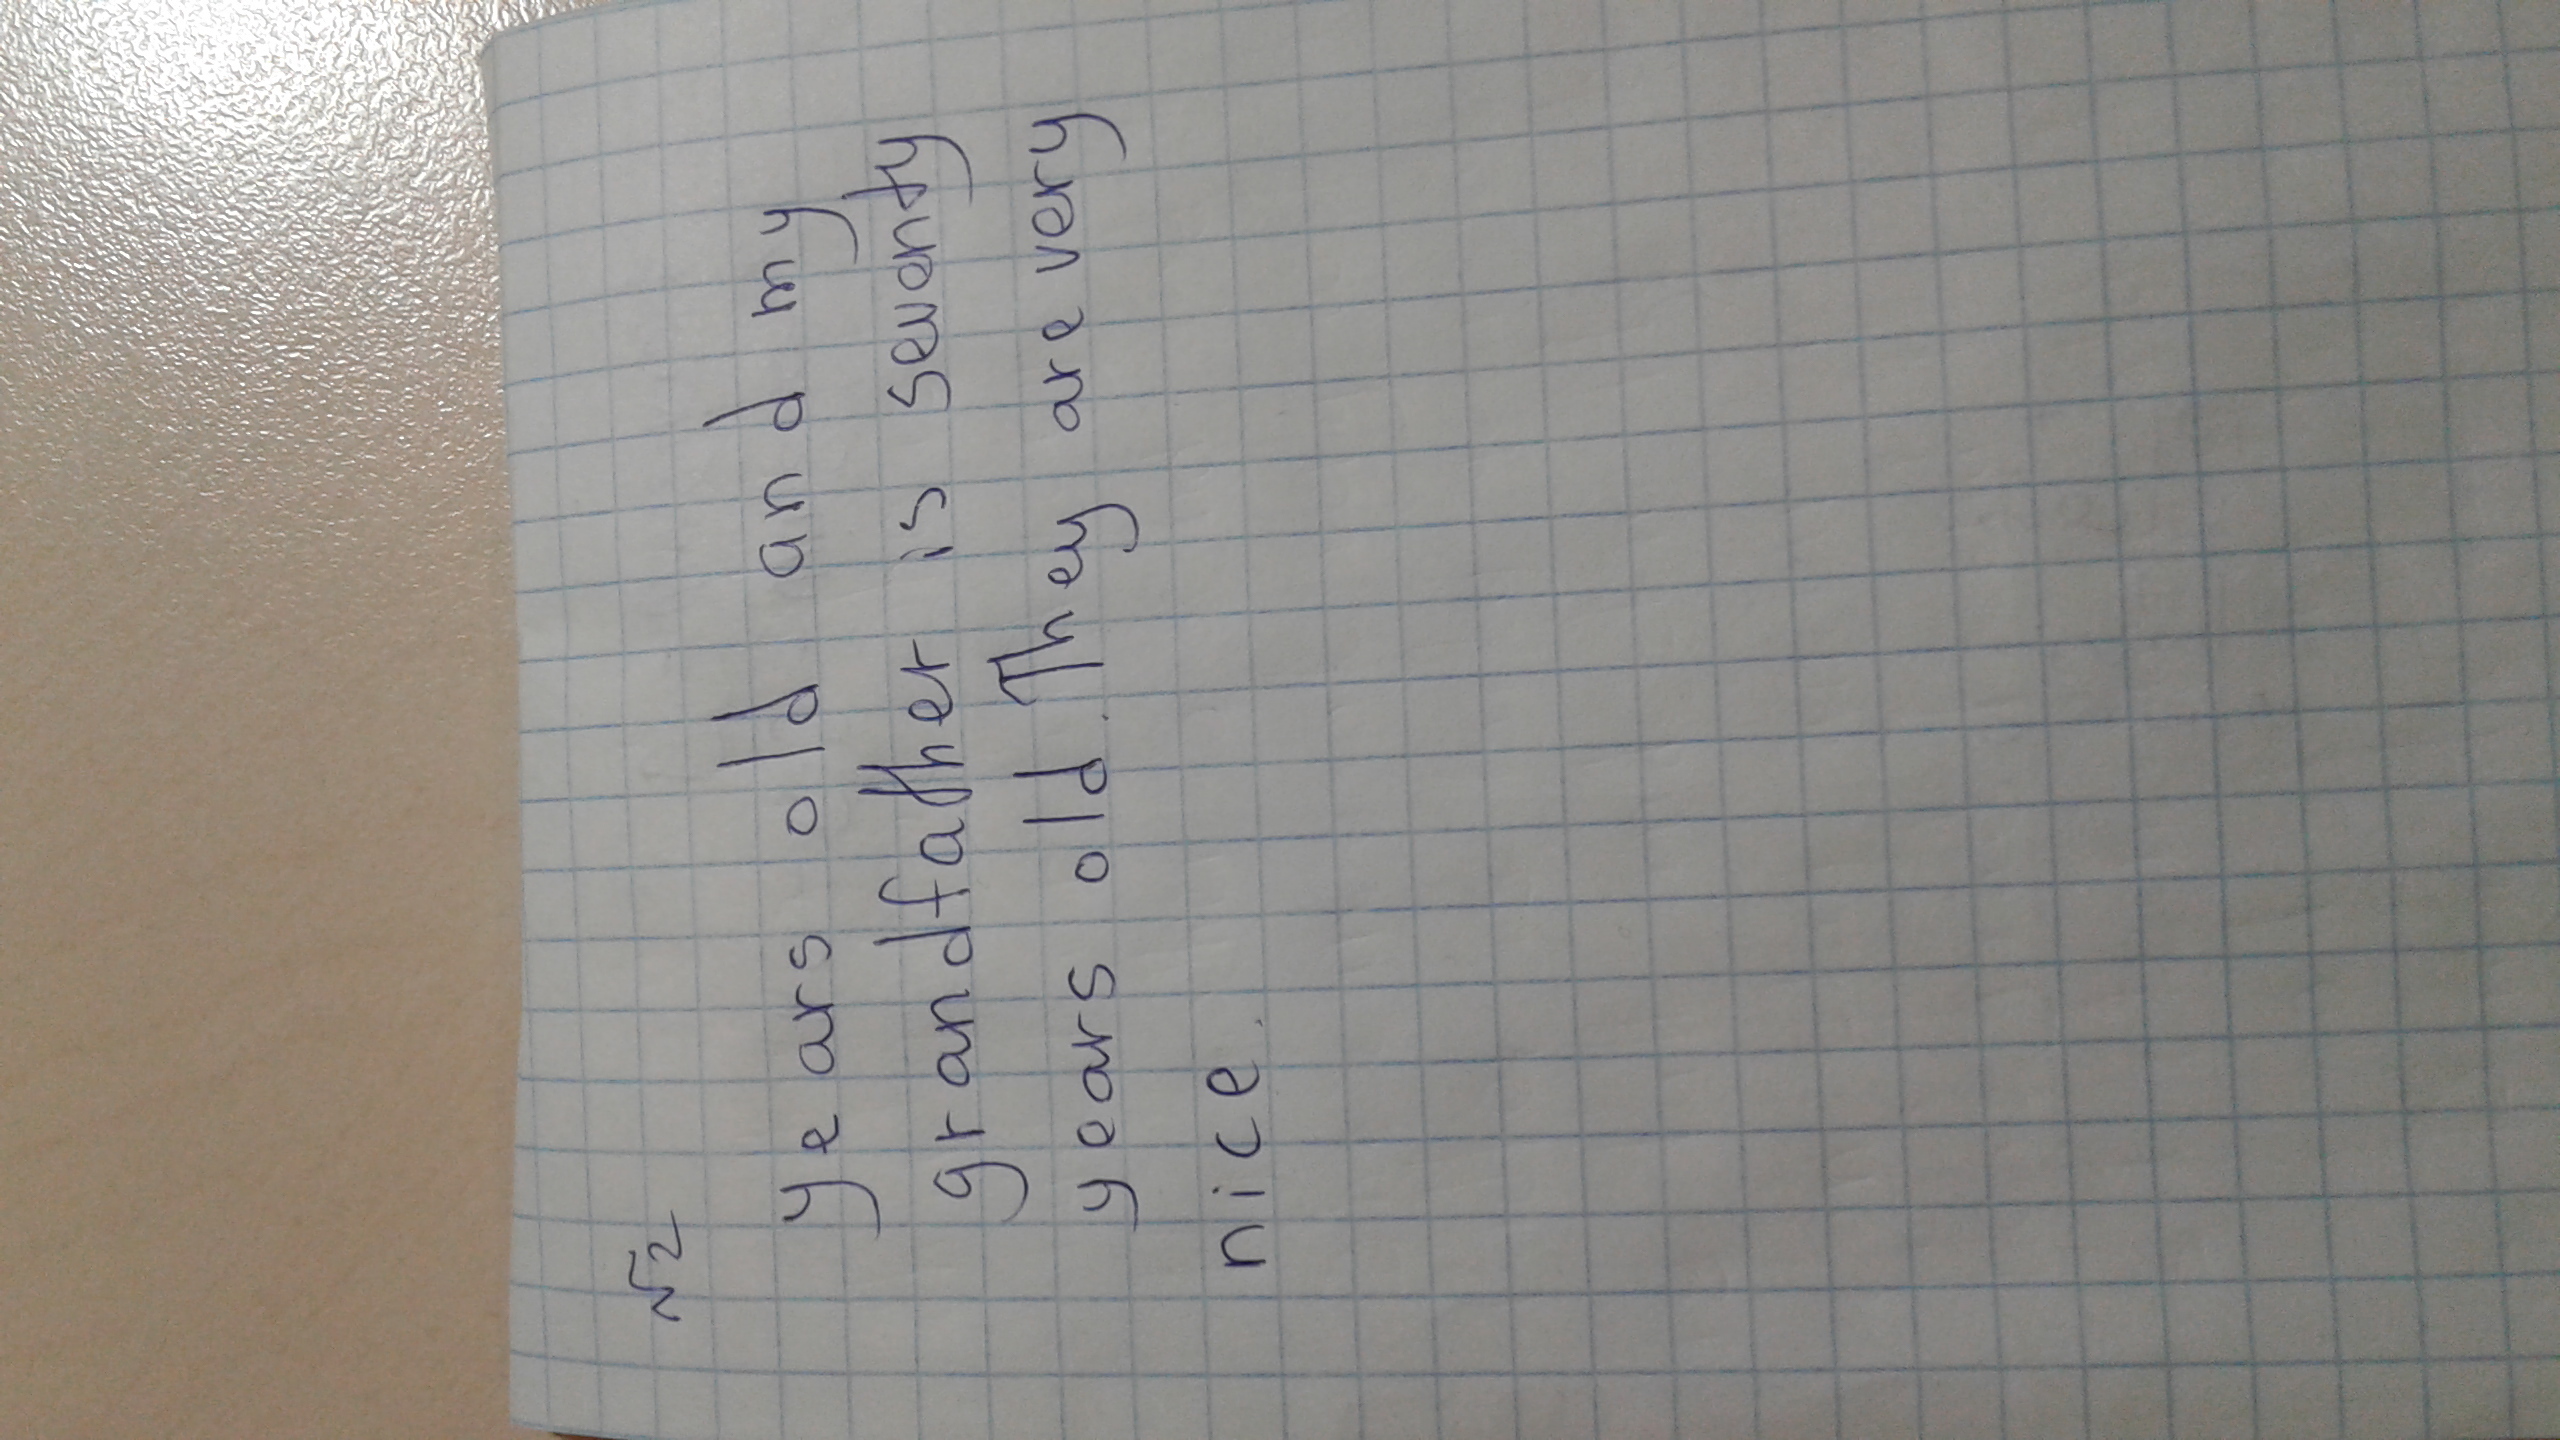 №2
years old and my
grandfather is seventy
years old. They are very
nice.